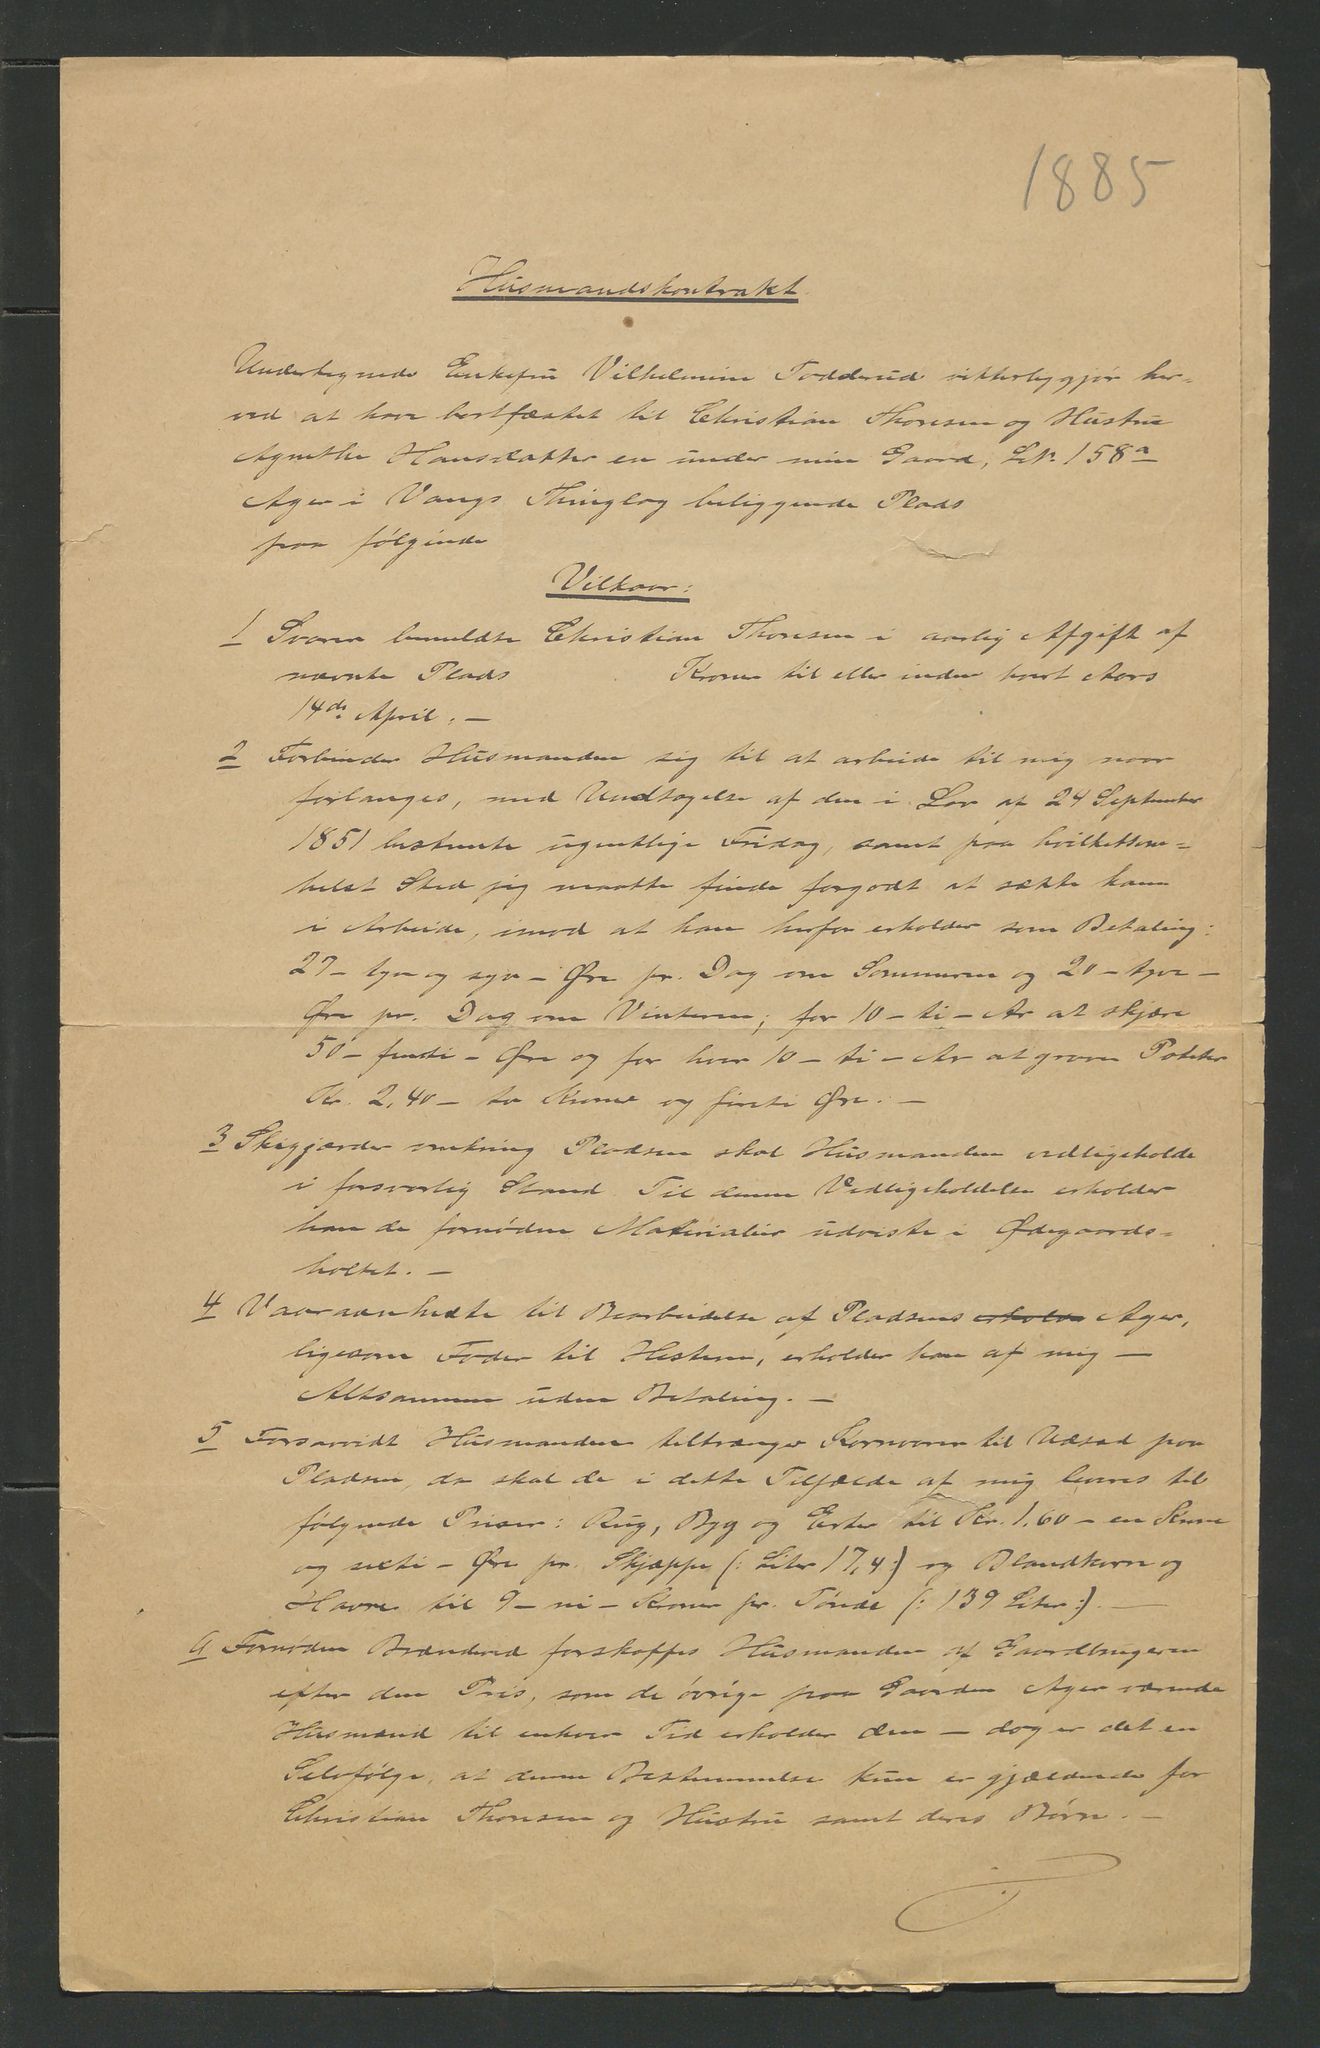 1885
Husmandskontrakt.
Undertegnede Enkefru Vilhelmine Todderud vitterliggjør her-
ved at have bortfæstet til Christian Thoresen og Hustru
Agnethe Hansdatter en under min Gaard, L.No 158a
Ager i Vangs Thinglag beliggende Plads
paa følgende
Vilkaar:
1 Svarer bemeldte Christian Thoresen i aarlig Afgift af
nævnte Plads Kroner til eller inden hvert Aars
14de April. —
2 Forbinder Husmanden sig til at arbeide til mig naar
forlanges, med Undtagelse af den i Lov af 24 September
1851 bestemte ugentlige Fridag, samt paa hvilketsom-
helst Sted jeg maatte finde forgodt at sætte ham
i Arbeide, imod at han herfor erholder som Betaling:
27 – tyve og syv – Øre pr. Dag om Sommeren og 20 – tyve –
Øre pr. Dag om Vinteren; for 10 – ti – Ar at skjære
50 – femti – Øre og for hver 10 – ti – Ar at grave Poteter
Kr. 2,40 – to Kroner og firti Øre. —
3 Skigjærder omkring Pladsen skal Husmanden vedligeholde
i forsvarlig Stand. Til denne Vedligeholdelse erholder
han de fornødne Materialier udviste i Ødegaards-
holtet. —
4 Vaaraanheste til Bearbeidelse af Pladsens erholder Ager,
ligesom Foder til Hestene, erholder han af mig —
Altsammen uden Betaling. —
5 Forsaavidt Husmanden tiltrænger Kornvarer til Udsæd paa
Pladsen, da skal de i dette Tilfælde af mig leveres til
følgende Priser: Rug, Byg og Erter til Kr. 1,60 – en Krone
og sexti – Øre pr. Skjæppe (: Liter 17,4 :) og Blandkorn og
Havre til 9 – ni – Kroner pr. Tønde (: 139 Liter :). —
6 Fornøden Brændeved forskaffes Husmanden af Gaardbrugeren
efter den Pris, som de øvrige paa Gaarden Ager værende
Husmænd til enhver Tid erholder den – dog er det en
Selvfølge, at denne Bestemmelse kun er gjældende for
Christian Thoresen og Hustru samt deres Børn. —